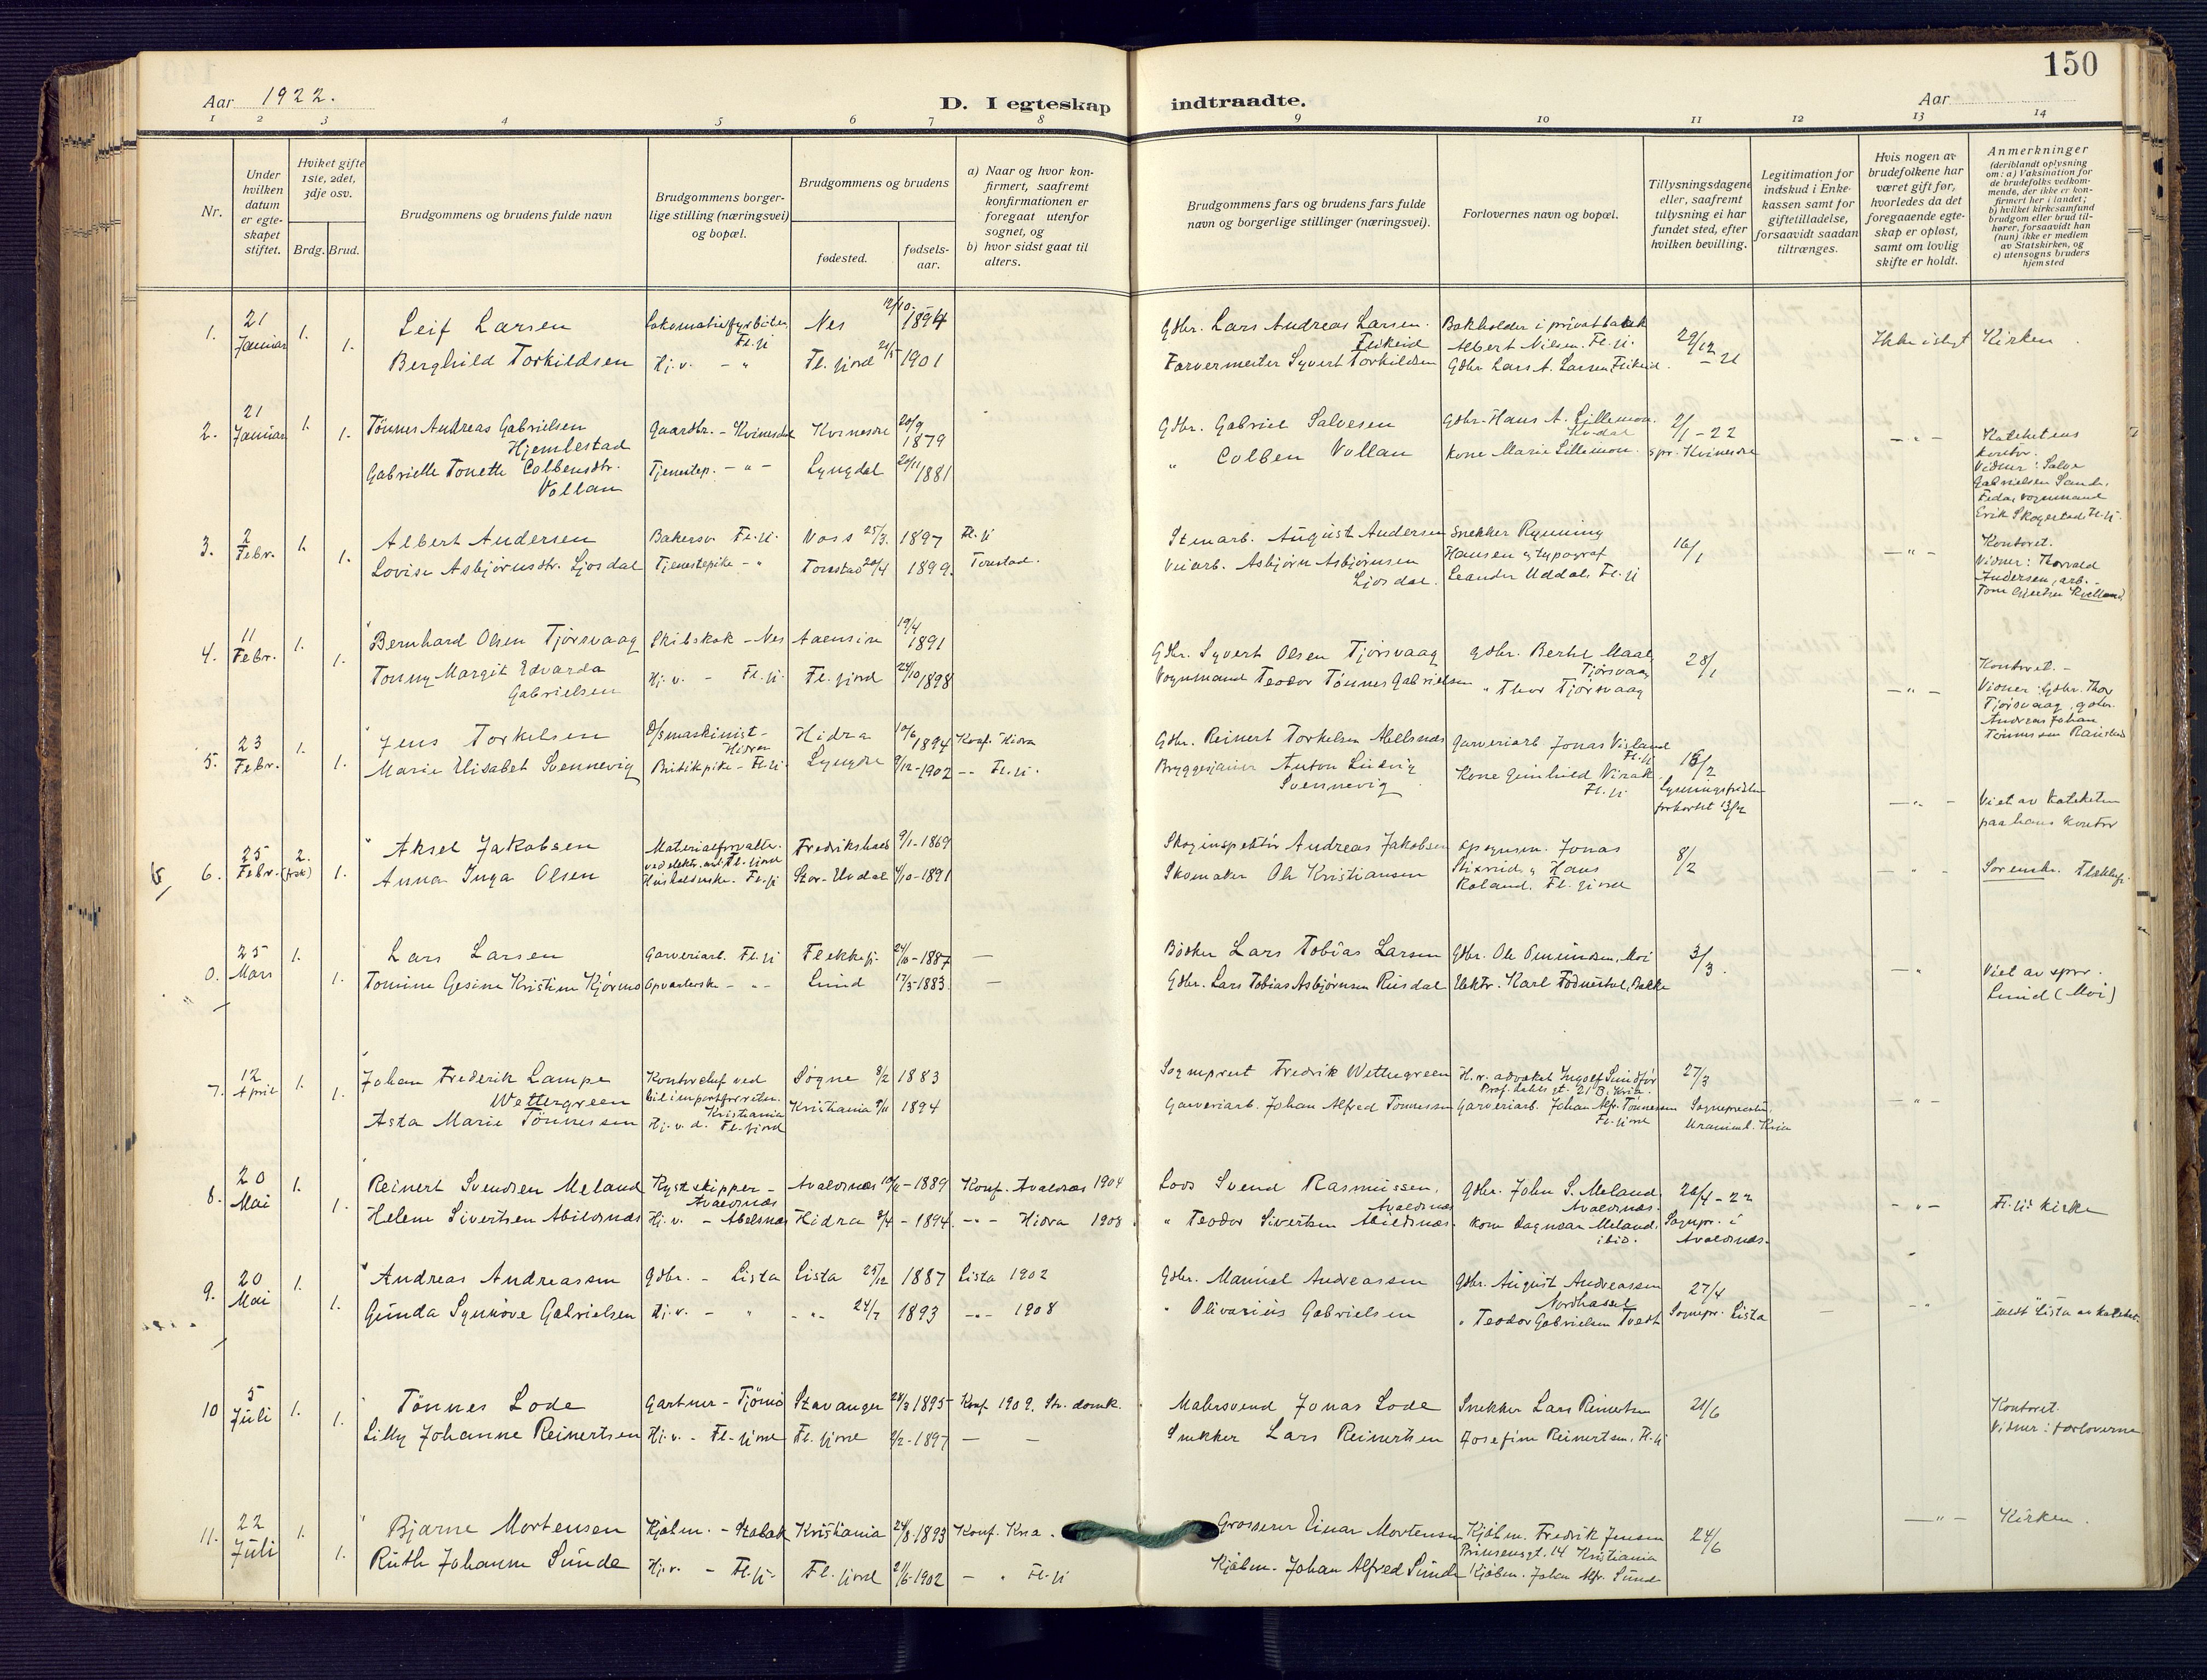 150
Aar 1922.
D. I egteskap indtraadte.
Aar
1 2 3 4 5 6 7 8 9 10 11 12 13 14
Nr.
Under hvilken datum er egte-skapet stiftet.
Hvilket gifte 1ste, 2det, 3dje osv.
Brdg. Brud.
Brudgommens og brudens fulde navn
Brudgommens borger-lige stilling (næringsvei) og bopæl.
Brudgommens og brudens
fødested.
fødsels-aar.
a) Naar og hvor kon-firmert, saafremt konfirmationen er foregaat utenfor sognet, og
b) hvor sidst gaat til alters.
Brudgommens fars og brudens fars fulde navn og borgerlige stillinger (næringsvei).
Forlovernes navn og bopæl.
Tillysningsdagene eller, saafremt tillysning ei har fundet sted, efter hvilken bevilling.
Legitimation for indskud i Enke-kassen samt for giftetilladelse, forsaavidt saadan tiltrænges.
Hvis nogen av brudefolkene har været gift før, hvorledes da det foregaaende egte-skap er opløst, samt om lovlig skifte er holdt.
Anmerkninger
(deriblandt oplysning om: a) Vaksination for de brudefolks vedkom-mende, der ikke er kon-firmert her i landet; b) hvilket kirkesamfund brudgom eller brud til-hører, forsaavidt han (hun) ikke er medlem av Statskirken, og c) utensogns bruders hjemsted
1. 21 Januar 1. Leif Larsen Lokomotivfyrbøter Fl.fj Nes 12/10 1894 Gdbr. Lars Andreas Larsen. Flikeid Bokholder i privatbank Albert Nilsen. Fl.fj. 29/12 - 21 Ikke i slegt Kirken.
1. Berghild Torkildsen Hj.v. - " Fl.fjord 1901 Farvermester Syvert Torkildsen Gdbr Lars A. Larsen Flikeid.
2. 21 Januar 1. Tønnes Andreas Gabrielsen Hjemlestad Gaardbr. - Kvinesdal Kvinesdal 20/9 1879 Gdbr. Gabriel Salvesen Gdbr. Hans A. Lillemon. 2/1 - 22 - " - Katekетens kontor.
1. Gabrielle Tonette Colbensdtr. Vollan Tjenestep. - " - Lyngdal 1881 " Colben Vollan Kone Marie Lillemon. spr. Kvinesdal Vidner: Salve Gabrielsen Sande, Feda, vognmand Erik Skogestad Fl.fj.
3. 2 Febr. 1. Albert Andersen Bakersv. Fl.fj. Voss 25/3 1897 Fl.fj Stenarb. August Andersen Snekker Rynning Hansen og typograf 16/1 - " - Kontoret.
1. Lovise Asbjørnsdtr. Ljosdal Tjenestepike - " Tonstad 20/4 1899. Tonstad. Veiarb. Asbjørn Asbjørnsen Ljosdal. Leander Uddal. Fl.fj Vidner: Thorvald Andersen, arb. -
4. 11 Febr. 1. Bernhard Olsen Tjørsvaag Skibskok - Nes 19/4 1891 Gdbr. Syvert Olsen Tjørsvaag gdbr. Bertel Maal Tjørsvaag 28/1 - " - Kontoret. -
1. Tonny Margit Edvarda Gabrielsen Hj.v. - Fl.fj. Fl.fjord 24/10 1898 Vognmand Teodor Tønnes Gabrielsen " Thor Tjørsvaag Vidner: Gdbr. Thor Tjørsvaag, gdbr. Andreas Johan Tønnessen
5. 23 Febr. 1. Jens Torkelsen D/S maskinist - Hidra Hidra 1894 Konf. Hidra Gdbr. Reinert Torkelsen Garveriarb Jonas Fl.fj 15/2
1. Marie Elisabet Svennevig Butikpike - Fl.fj. Lyngdal 9/12 - 1902 - " - Fl.fj. Bryggesjauer Anton Ludvig Svennevig Kone Gunhild Fl.fj Lysningsfristen forkortet 13/2 - " - Viet av kateketen paa hans kontor
6. 25 Febr. 2. (frsk) Aksel Jakobsen Materialforvalter ved elektr. Fl.fjord Fredrikshald 9/1 - 1869 Skoginspektør Andreas Jakobsen Jonas 8/2 - " - Sorenskr. Flekkefj.
1. Anna Inga Olsen Husholderske. Fl.fj Sør-Undal 4/10 - 1891 Skomaker Ole Kristiansen " Hans Roland, Fl.fjord
0. 25 Mars 1. Lars Larsen Garveriarb. Fl.fj Flekkefj. 1887 - Bødker Lars Tobias Larsen Gdbr. Ole Omundsen, Moi 3/3. - " Viet av spr. Lund (Moi)
1. Tomine Gesine Kristine Kjørmo Opvarterske - " - Lund 17/5 - 1883 - Gdbr. Lars Tobias Asbjørnsen Risdal Karl
7. 12 April 1. Johan Frederik Lampe Wettergreen Kontorchef ved Kristiania Søgne 8/2 1883 Sogneprest Fredrik Wettergreen H.r. advokat Ingolf Sundfør 27/3 - " -
1. Asta Marie Tønnessen Hj.v.d. Fl.fjord Kristiania 9/11 1894 Garveriarb. Johan Alfred Tønnessen Garveriarb. Johan Alfr. Tønnessen Fl.fjord Uranienb. Kria
8. 20 Mai 1. Reinert Svendsen Meland Kystskipper - Avaldsnes Avaldsnes 1889 Konf. Avaldsnes 1904 Lods Svend Rasmussen, Avaldsnes Gdbr. John S. Meland, Avaldsnes. 26/4 - 22 - " - Fl.fj. kirke
1. Helene Sivertsen Abildsnes Hj.v. - Abelsnes Hidra 1894. - " - Hidra 1908 " Teodor Sivertsen Abildsnes. kone Dagmar Meland. ibid. Sognpr. i Avaldsnes.
9. 20 Mai 1. Andreas Andreassen Gdbr. - Lista Lista 25/12 1887 Lista 1902 Gdbr. Manuel Andreassen Gdbr. August Andreassen Nordhassel 27/4
1. Gunda Synnøve Gabrielsen Hj.v. - " - " - 24/7 1893 - " - 1908 " Olivarius Gabrielsen " Teodor Gabrielsen Tvedt Sognpr. Lista
10 5 Juli 1. Tønnes Lode Gartner - Tjømø Stavanger 1895 Konf 1909. St. domk. Malersvend Jonas Lode Snekker Lars Reinertsen 21/6 Kontoret.
1. Lilly Johanne Reinertsen Hj.v. - Fl.fjord Fl.fjord 2/2 - 1897 - - Snekker Lars Reinertsen Josefine Reinertsen. Fl.fj Vidner: forloverne
11. 22 Juli 1. Bjarne Mortensen Kjøbm. - Stabæk Kristiania 1893 Konf. Kria. Grosserer Einar Mortensen Kjøbm. Fredrik Jensen Prinsensgt. 14 Kristiania 24/6 - " - Kirken.
1. Ruth Johanne Sunde Hj.v. - Fl.fj. Fl.fjord 1902 - " Fl.fj Kjøbm. Johan Alfred Sunde Kjøbm. Johan Alfr. Sunde